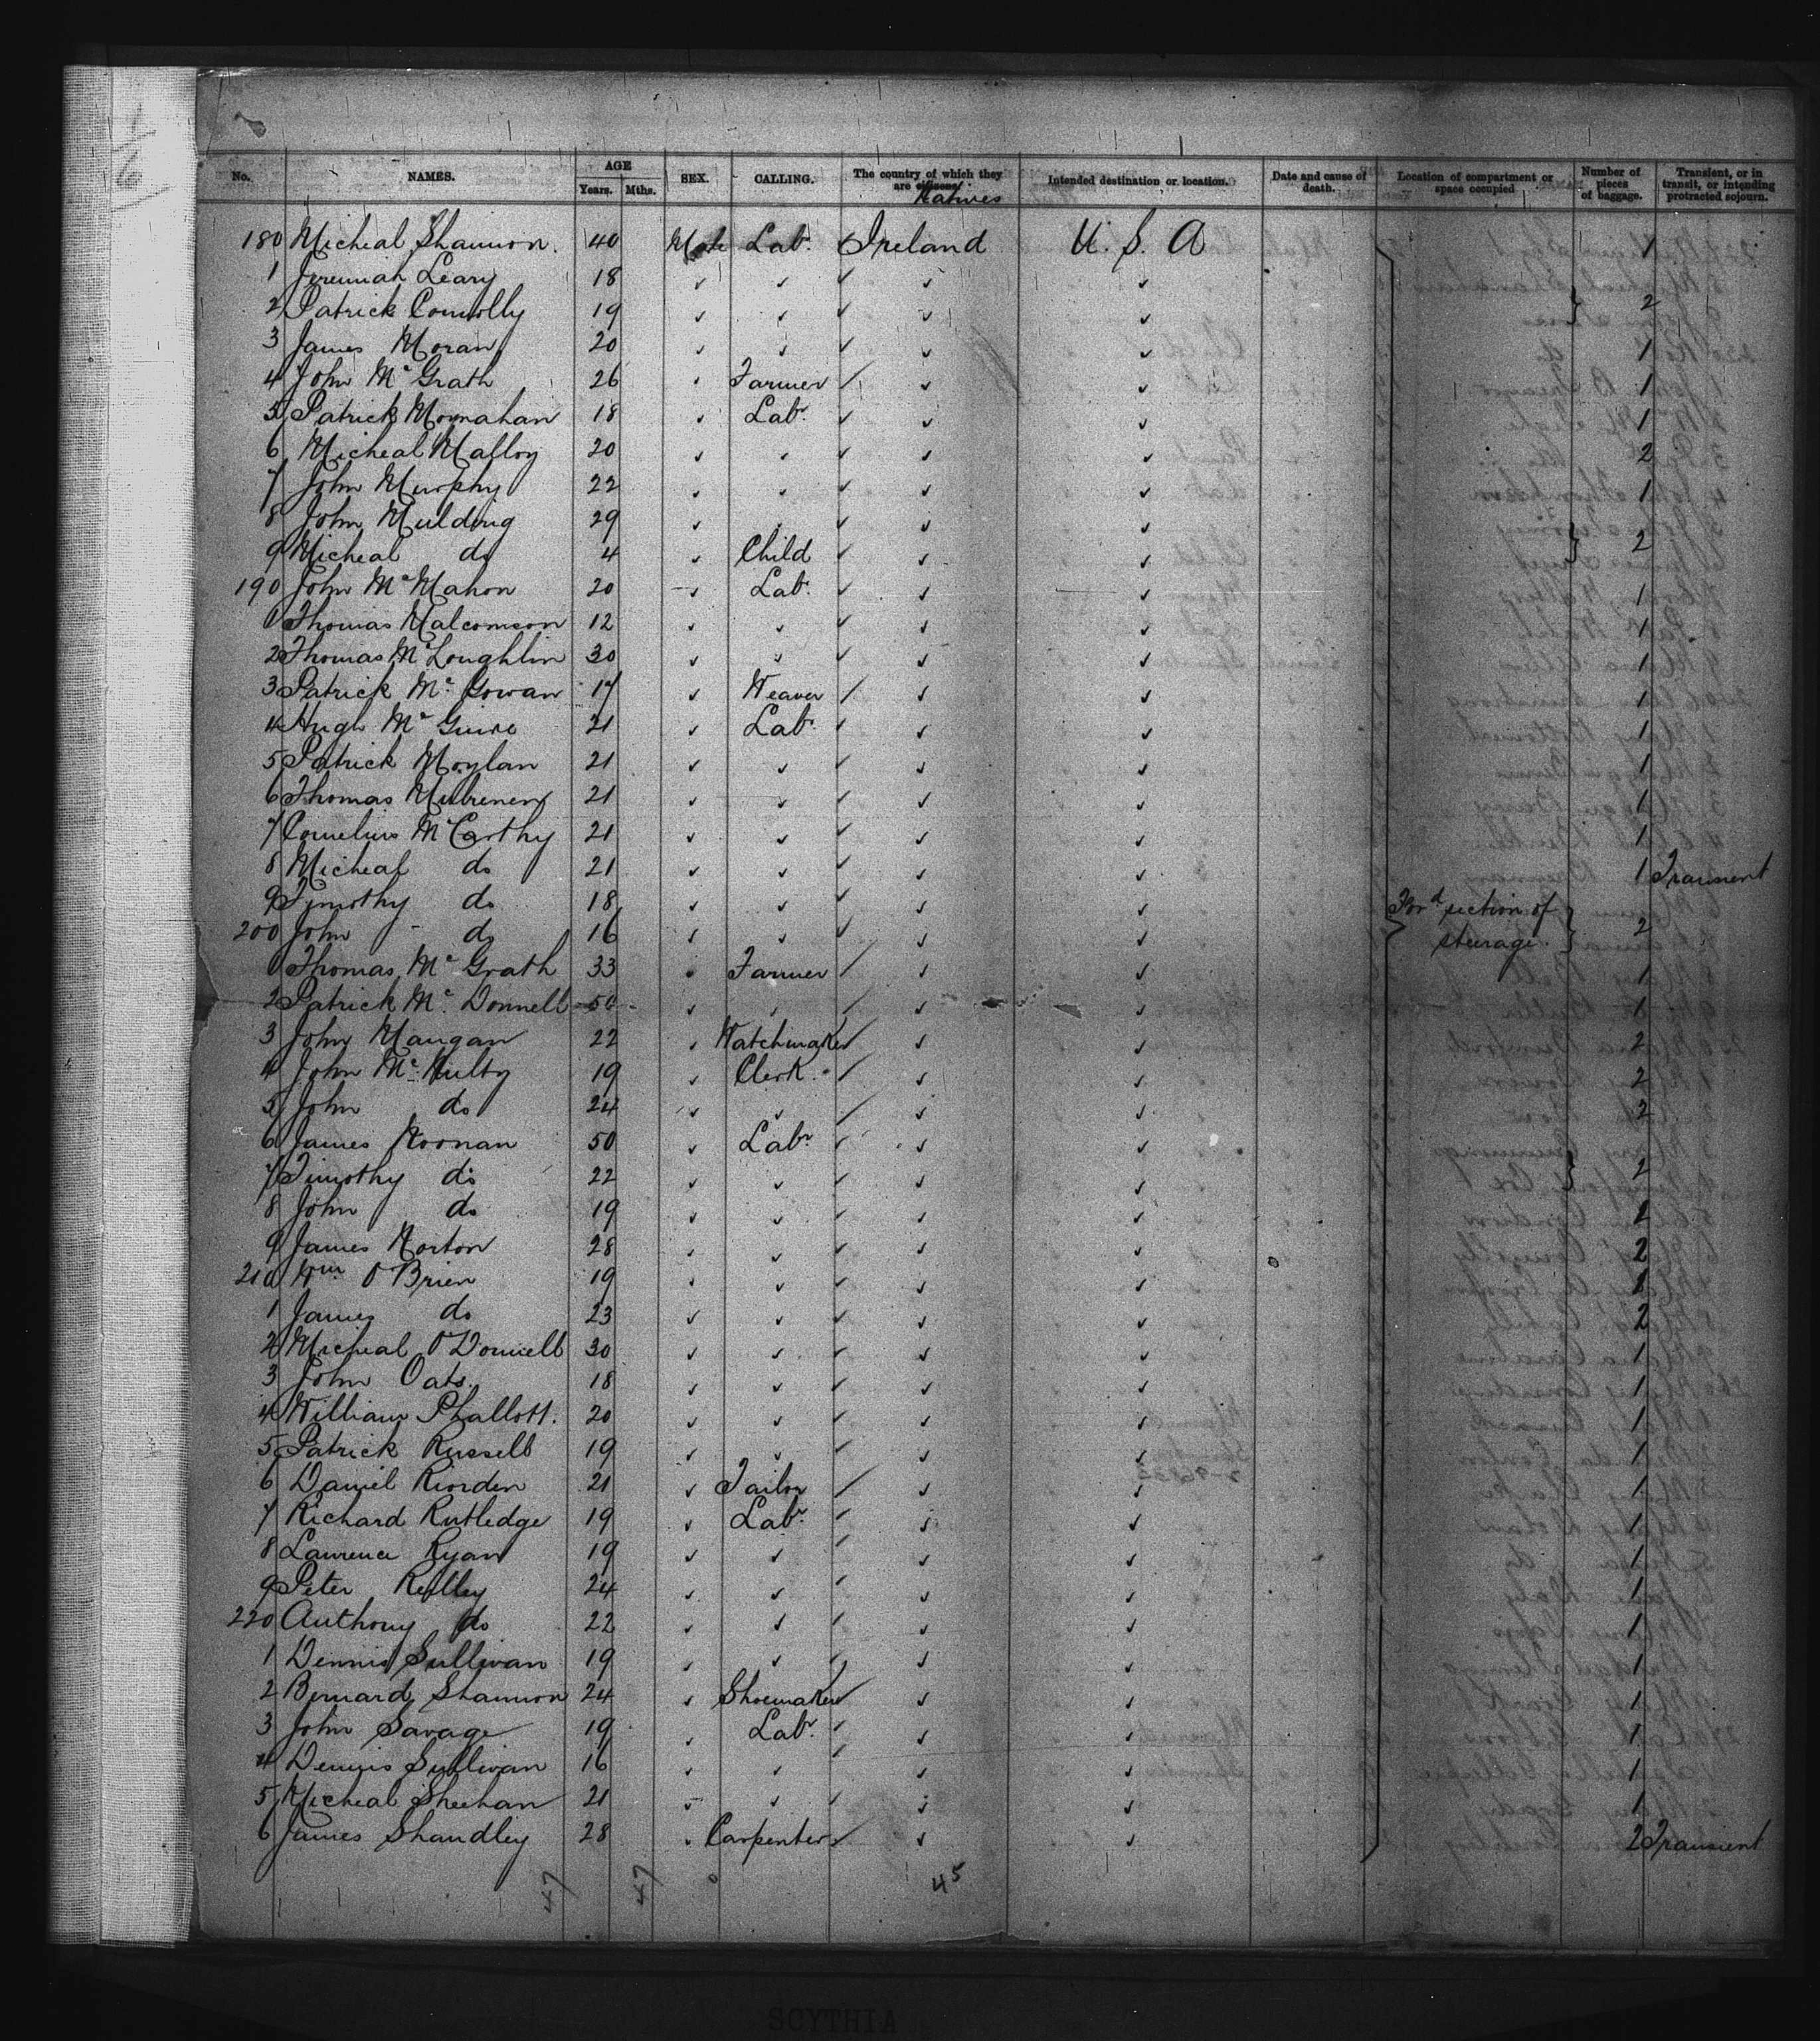 No. NAMES. AGE Years. Mths. SEX. CALLING. The country of which they are citizens/ Natives Intended destination or location. Date and cause of death. Location of compartment or space occupied Number of pieces of baggage. Transient, or in transit, or intending protracted sojourn.
180 Micheal Shannon. 40 Male Labr. Ireland U. S. A 1
1 Jeremiah Leary 18 ✓ ✓ ✓ ✓
2 Patrick Connolly 19 ✓ ✓ ✓ ✓ } 2
3 James Moran 20 ✓ ✓ ✓ ✓ 1
4 John Mc Grath 26 ✓ Farmer ✓ ✓ 1
5 Patrick Moynahan 18 ✓ Labr ✓ ✓ 1
6 Micheal Malloy 20 ✓ ✓ ✓ ✓ 2
7 John Murphy 22 ✓ ✓ ✓ ✓ 1
8 John Mulding 29 ✓ ✓ ✓ ✓
9 Micheal do 4 ✓ Child ✓ ✓ } 2
190 John Mc Mahon 20 ✓ Labr. ✓ ✓ 1
1 Thomas Malcomson 12 ✓ ✓ ✓ ✓ 1
2 Thomas Mc Loughlin 30 ✓ ✓ ✓ ✓ 1
3 Patrick Mc Gowan 17 ✓ Weaver ✓ ✓ 1
4 Hugh Mc Guire 21 ✓ Labr ✓ ✓ 1
5 Patrick Moylan 21 ✓ ✓ ✓ ✓ 1
6 Thomas 21 ✓ ✓ ✓ ✓ 1
7 Cornelius Mc Carthy 21 ✓ ✓ ✓ ✓ 1
8 Micheal do 21 ✓ ✓ ✓ ✓ 1 Transient
9 Timothy do 18 ✓ ✓ ✓ ✓ Ford section of
200 John do 16 ✓ ✓ ✓ ✓ steerage. } 2
1 Thomas Mc Grath 33 ✓ Farmer ✓ ✓ 1
2 Patrick Mc Donnell 50 ✓ ✓ ✓ ✓ 1
3 John Mangan 22 ✓ Watchmaker ✓ ✓ 2
4 John Mc Nulty 19 ✓ Clerk. ✓ ✓ 2
5 John do 24 ✓ ✓ ✓ ✓ 2
6 James Noonan 50 ✓ Labr ✓ ✓
7 Timothy do 22 ✓ ✓ ✓ ✓ } 2
8 John do 19 ✓ ✓ ✓ ✓ 2
9 James Norton 28 ✓ ✓ ✓ ✓ 2
210 Wm O'Brien 19 ✓ ✓ ✓ ✓
1 James do 23 ✓ ✓ ✓ ✓ 2
2 Micheal O'Donnell 30 ✓ ✓ ✓ ✓ 1
3 John Oats. 18 ✓ ✓ ✓ ✓ 1
4 William Phallott. 20 ✓ ✓ ✓ ✓ 1
5 Patrick Russell 19 ✓ ✓ ✓ ✓ 1
6 Daniel Riorden 21 ✓ Tailor ✓ ✓ 1
7 Richard Rutledge 19 ✓ Labr ✓ ✓ 1
8 Lawrence Ryan 19 ✓ ✓ ✓ ✓ 1
9 Peter Reilley 24 ✓ ✓ ✓ ✓ 1
220 Anthony do 22 ✓ ✓ ✓ ✓ 1
1 Dennis Sullivan 19 ✓ ✓ ✓ ✓ 1
2 Bernard Shannon 24 ✓ Shoemaker ✓ ✓ 1
3 John Savage 19 ✓ Labr. ✓ ✓ 1
4 Dennis Sullivan 16 ✓ ✓ ✓ ✓ 1
5 Micheal Sheehan 21 ✓ ✓ ✓ ✓ 1
6 James Shandley 28 ✓ Carpenter ✓ ✓ 2 Transient
47 47 0 45
SCYTHIA